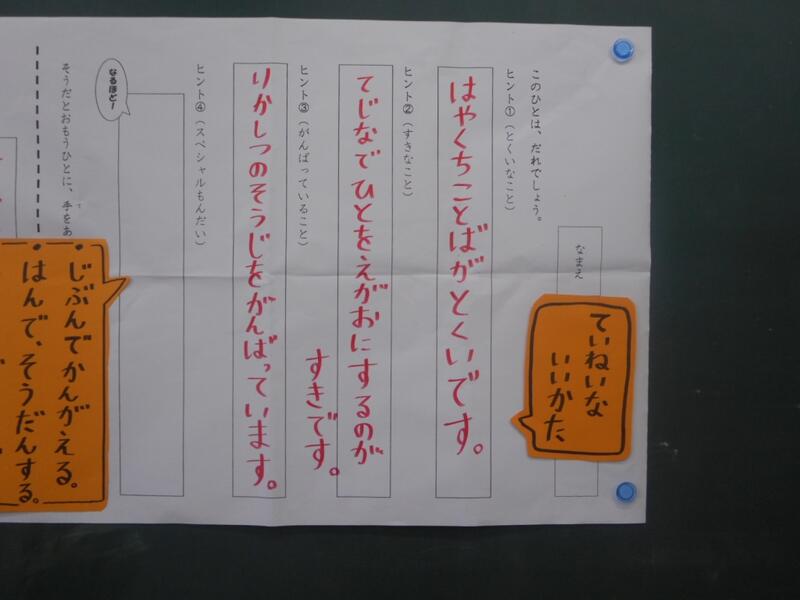 なまえ
ていねいな
いいかた
このひとは、だれでしょう。
ヒント①(とくいなこと)
はやくちことばがとくいです。
ヒント②(すきなこと)
てじなでひとをえがおにするのが
すきです。
ヒント③(がんばっていること)
りかしつのそうじをがんばっています。
ヒント④(スペシャルもんだい)
なるほどー
そうだとおもうひとに、手をあ
・じぶんでかんがえる。
・はんで、そうだんする。